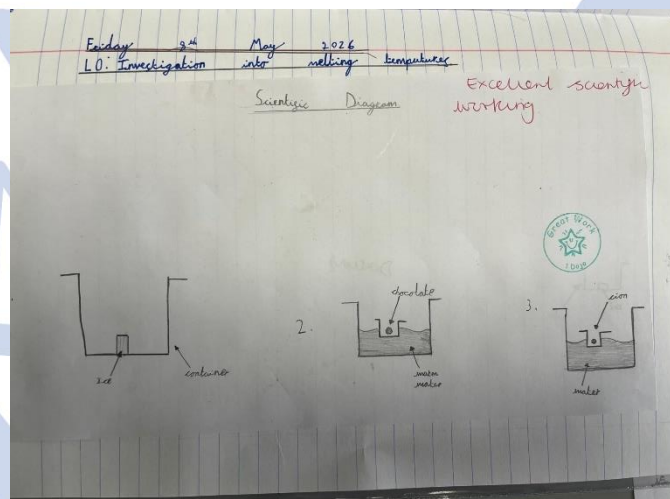 Friday 8th May 2026
LO: Investigation into melting temputures
Scientific Diagram
Excellent scientific
working
Great Work
1 Doje
Ice
container
2.
chocolate
warm
water
3.
iron
water